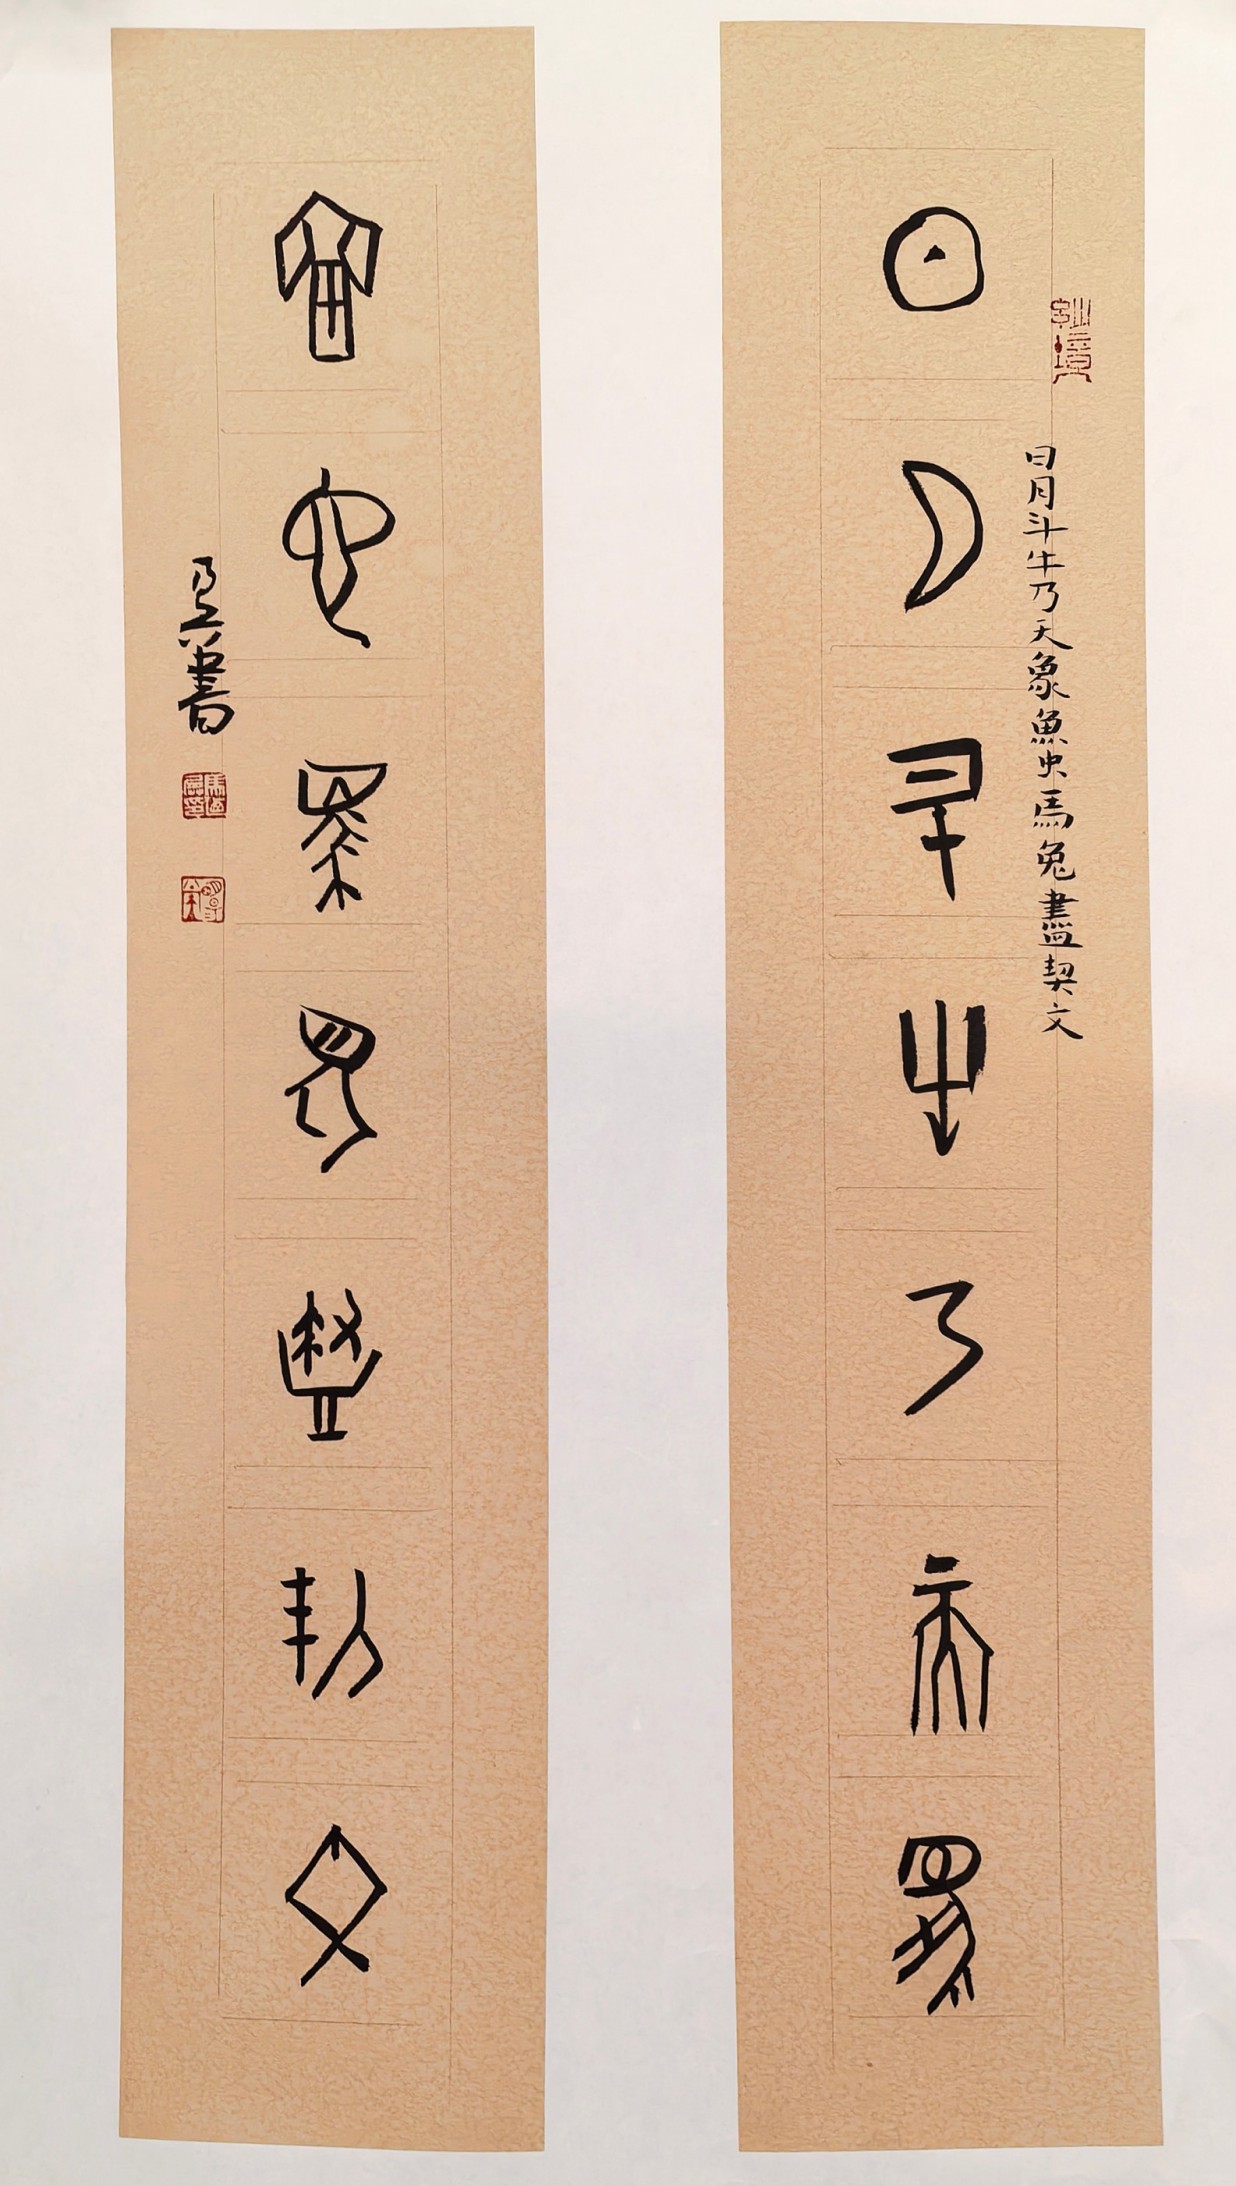 日月斗牛乃天象
日月斗牛乃天象魚虫馬兔盡契文
魚虫馬兔盡契文
書